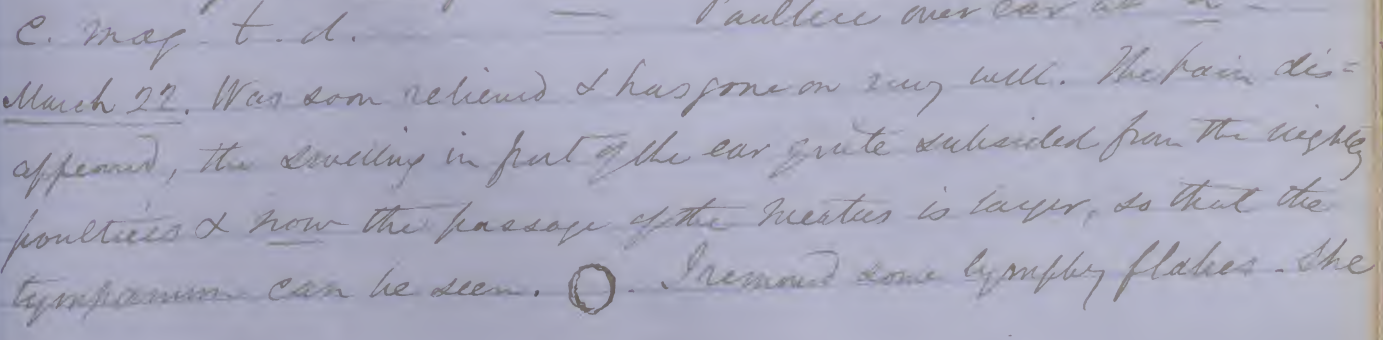 c. mag t. d. — Poultice over ear at
March 22. Was soon relieved & has gone on very well. The pain dis=
appeared, the swelling in front of the ear quite subsided from the nightly
poultices & now the passage of the meatus is larger, so that the
tympanum can be seen. O. I removed some lymphy flakes. She